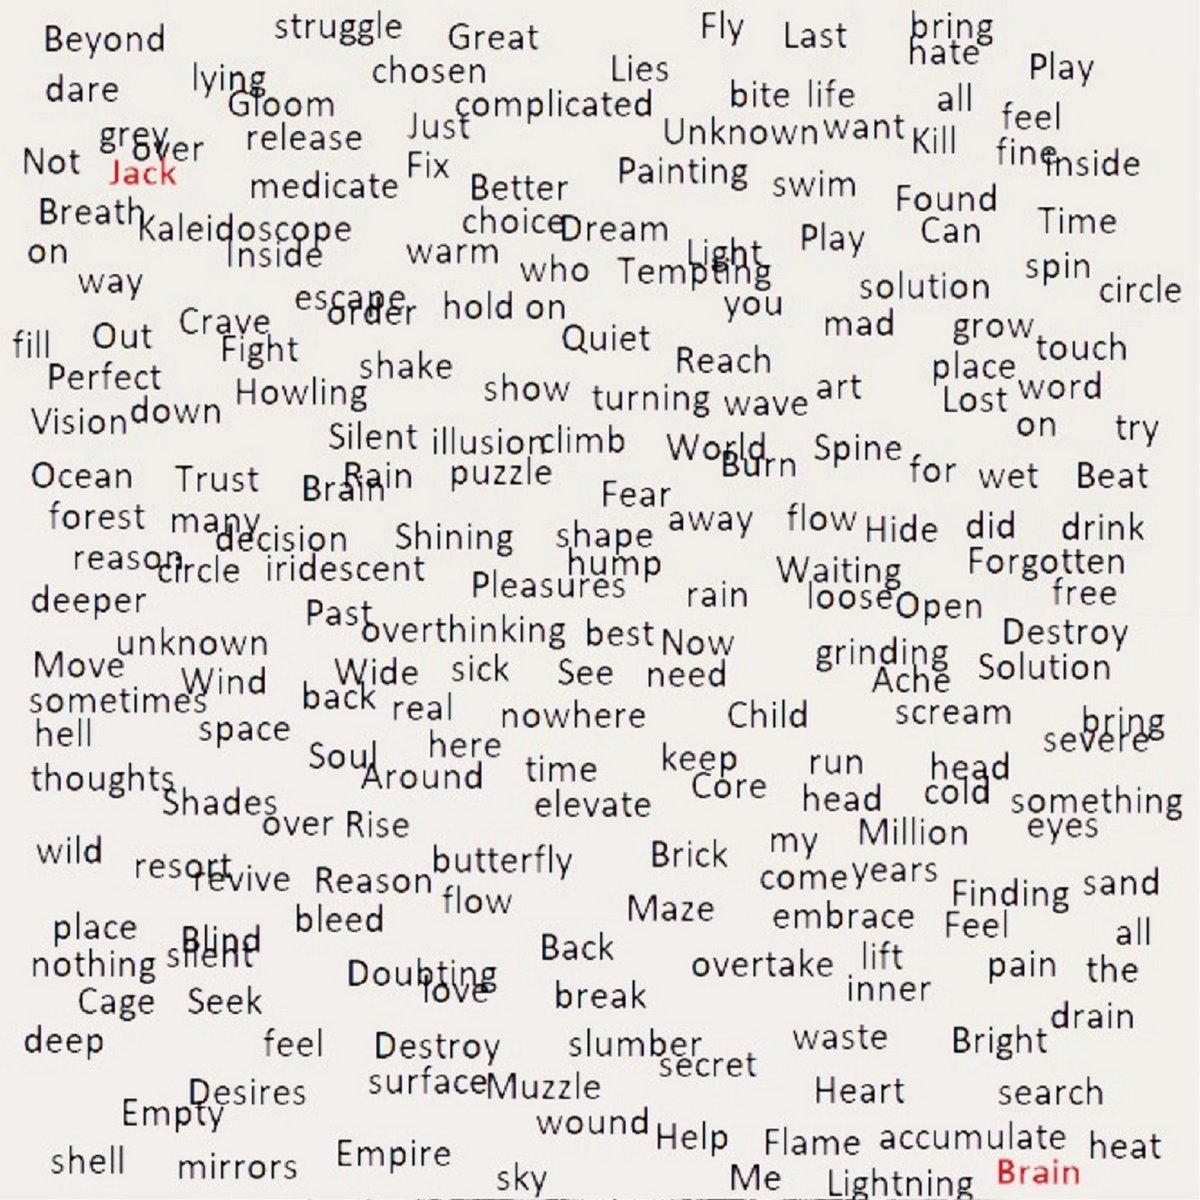 Beyond struggle Great Fly Last bring
hate
dare lying chosen Lies Play
Gloom complicated bite life all
grey over release Just Unknown want Kill feel
Not Jack Fix Painting fine inside
medicate Better swim Found
Breath Kaleidoscope choice Dream Play Can Time
on Inside warm who Tempting Light spin
way escape order hold on you solution circle
fill Out Crave Quiet mad grow
Fight shake Reach place touch
Perfect Howling show turning wave art Lost word
Vision down Silent illusion climb World Spine on try
Ocean Trust Brain Rain puzzle Burn for wet Beat
Fear
forest many decision Shining shape away flow Hide did drink
reason circle iridescent hump Waiting Forgotten
deeper Pleasures rain loose Open free
Past overthinking best Now Destroy
unknown grinding
Move Wind Wide sick See need Ache Solution
sometimes back real nowhere Child scream bring
hell space here severe
Soul Around time keep run head
thoughts Shades elevate Core head cold something
over Rise Million eyes
wild resort revive Reason butterfly Brick my
come years
flow Maze Finding sand
place Blind bleed embrace Feel all
nothing silent Doubting Back overtake lift pain the
love inner
Cage Seek break drain
deep feel Destroy slumber waste Bright
secret
Desires surface Muzzle Heart search
Empty wound Help Flame accumulate heat
shell mirrors Empire sky Me Lightning Brain